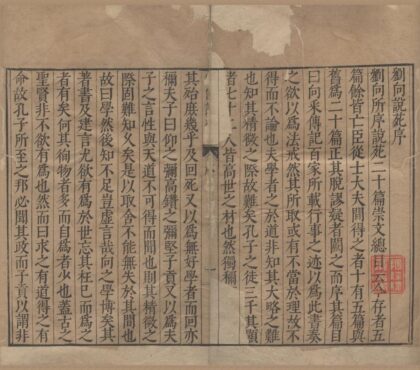 劉向說苑序
劉向所序說苑二十篇崇文總目云今存者五
篇餘皆亡臣從士大夫間得之者十有五篇與
舊為二十篇正其脫謬疑者闕之而序其篇目
曰向采傳記百家所載行事之迹以為此書奏
之欲以為法戒然其所取或有不當於理故不
得而不論也夫學者之於道非知其大略之難
也知其精微之際故難矣孔子之徒三千其顯
者七十二人皆高世之材也然獨稱
其殆庶幾乎及回死又以為無好學者而回亦
稱夫子曰仰之彌高鑽之彌堅子貢又以為夫
子之言性與天道不可得而聞也則其精微之
際固難知久矣是以取舍不能無失於其間也
故曰學然後知不足豈虛言哉向之學博矣其
著書及建言尤欲有為於世忘其枉己而為之
者有矣何其徇物者多而自為者少也蓋古之
聖賢非不欲有為也然而曰求之有道得之有
命故孔子所至之邦必聞其政而子貢以謂非